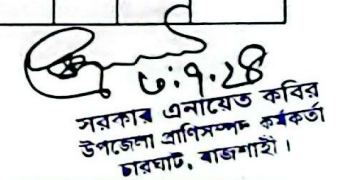 ৩.৭.২৪
সরকার এনায়েত কবির
উপজেলা প্রাণিসম্পদ কর্মকর্তা
চারঘাট, রাজশাহী।